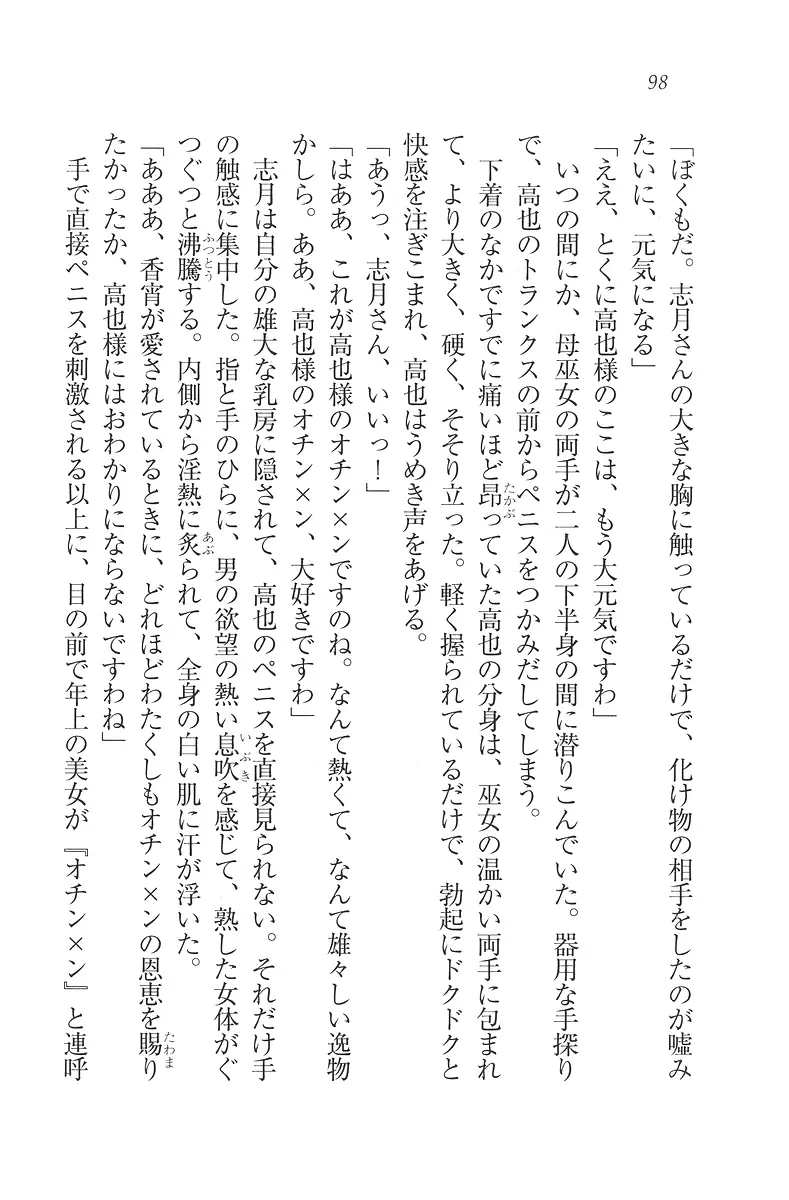 98
「ぼくもだ。志月さんの大きな胸に触っているだけで、化け物の相手をしたのが嘘み
たいに、元気になる」
「ええ、とくに高也様のここは、もう大元気ですわ」
いつの間にか、母巫女の両手が二人の下半身の間に潜りこんでいた。器用な手探り
で、高也のトランクスの前からペニスをつかみだしてしまう。
下着のなかですでに痛いほど昂っていた高也の分身は、巫女の温かい両手に包まれ
て、より大きく、硬く、そそり立った。軽く握られているだけで、勃起にドクドクと
快感を注ぎこまれ、高也はうめき声をあげる。
「あうっ、志月さん、いいっ！」
「はああ、これが高也様のオチン×ンですのね。なんて熱くて、なんて雄々しい逸物
かしら。ああ、高也様のオチン×ン、大好きですわ」
志月は自分の雄大な乳房に隠されて、高也のペニスを直接見られない。それだけ手
の触感に集中した。指と手のひらに、男の欲望の熱い息吹を感じて、熟した女体がぐ
つぐつと沸騰する。内側から淫熱に炙られて、全身の白い肌に汗が浮いた。
「あああ、香宵が愛されているときに、どれほどわたくしもオチン×ンの恩恵を賜り
たかったか、高也様にはおわかりにならないですわね」
手で直接ペニスを刺激される以上に、目の前で年上の美女が『オチン×ン』と連呼